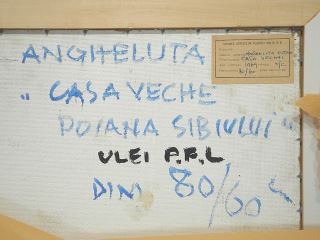 ANGHELUTA
" CASA VECHE
POIANA SIBIULUI "
ULEI P.F.L
DIM 80/60 cm
CASA VECHE